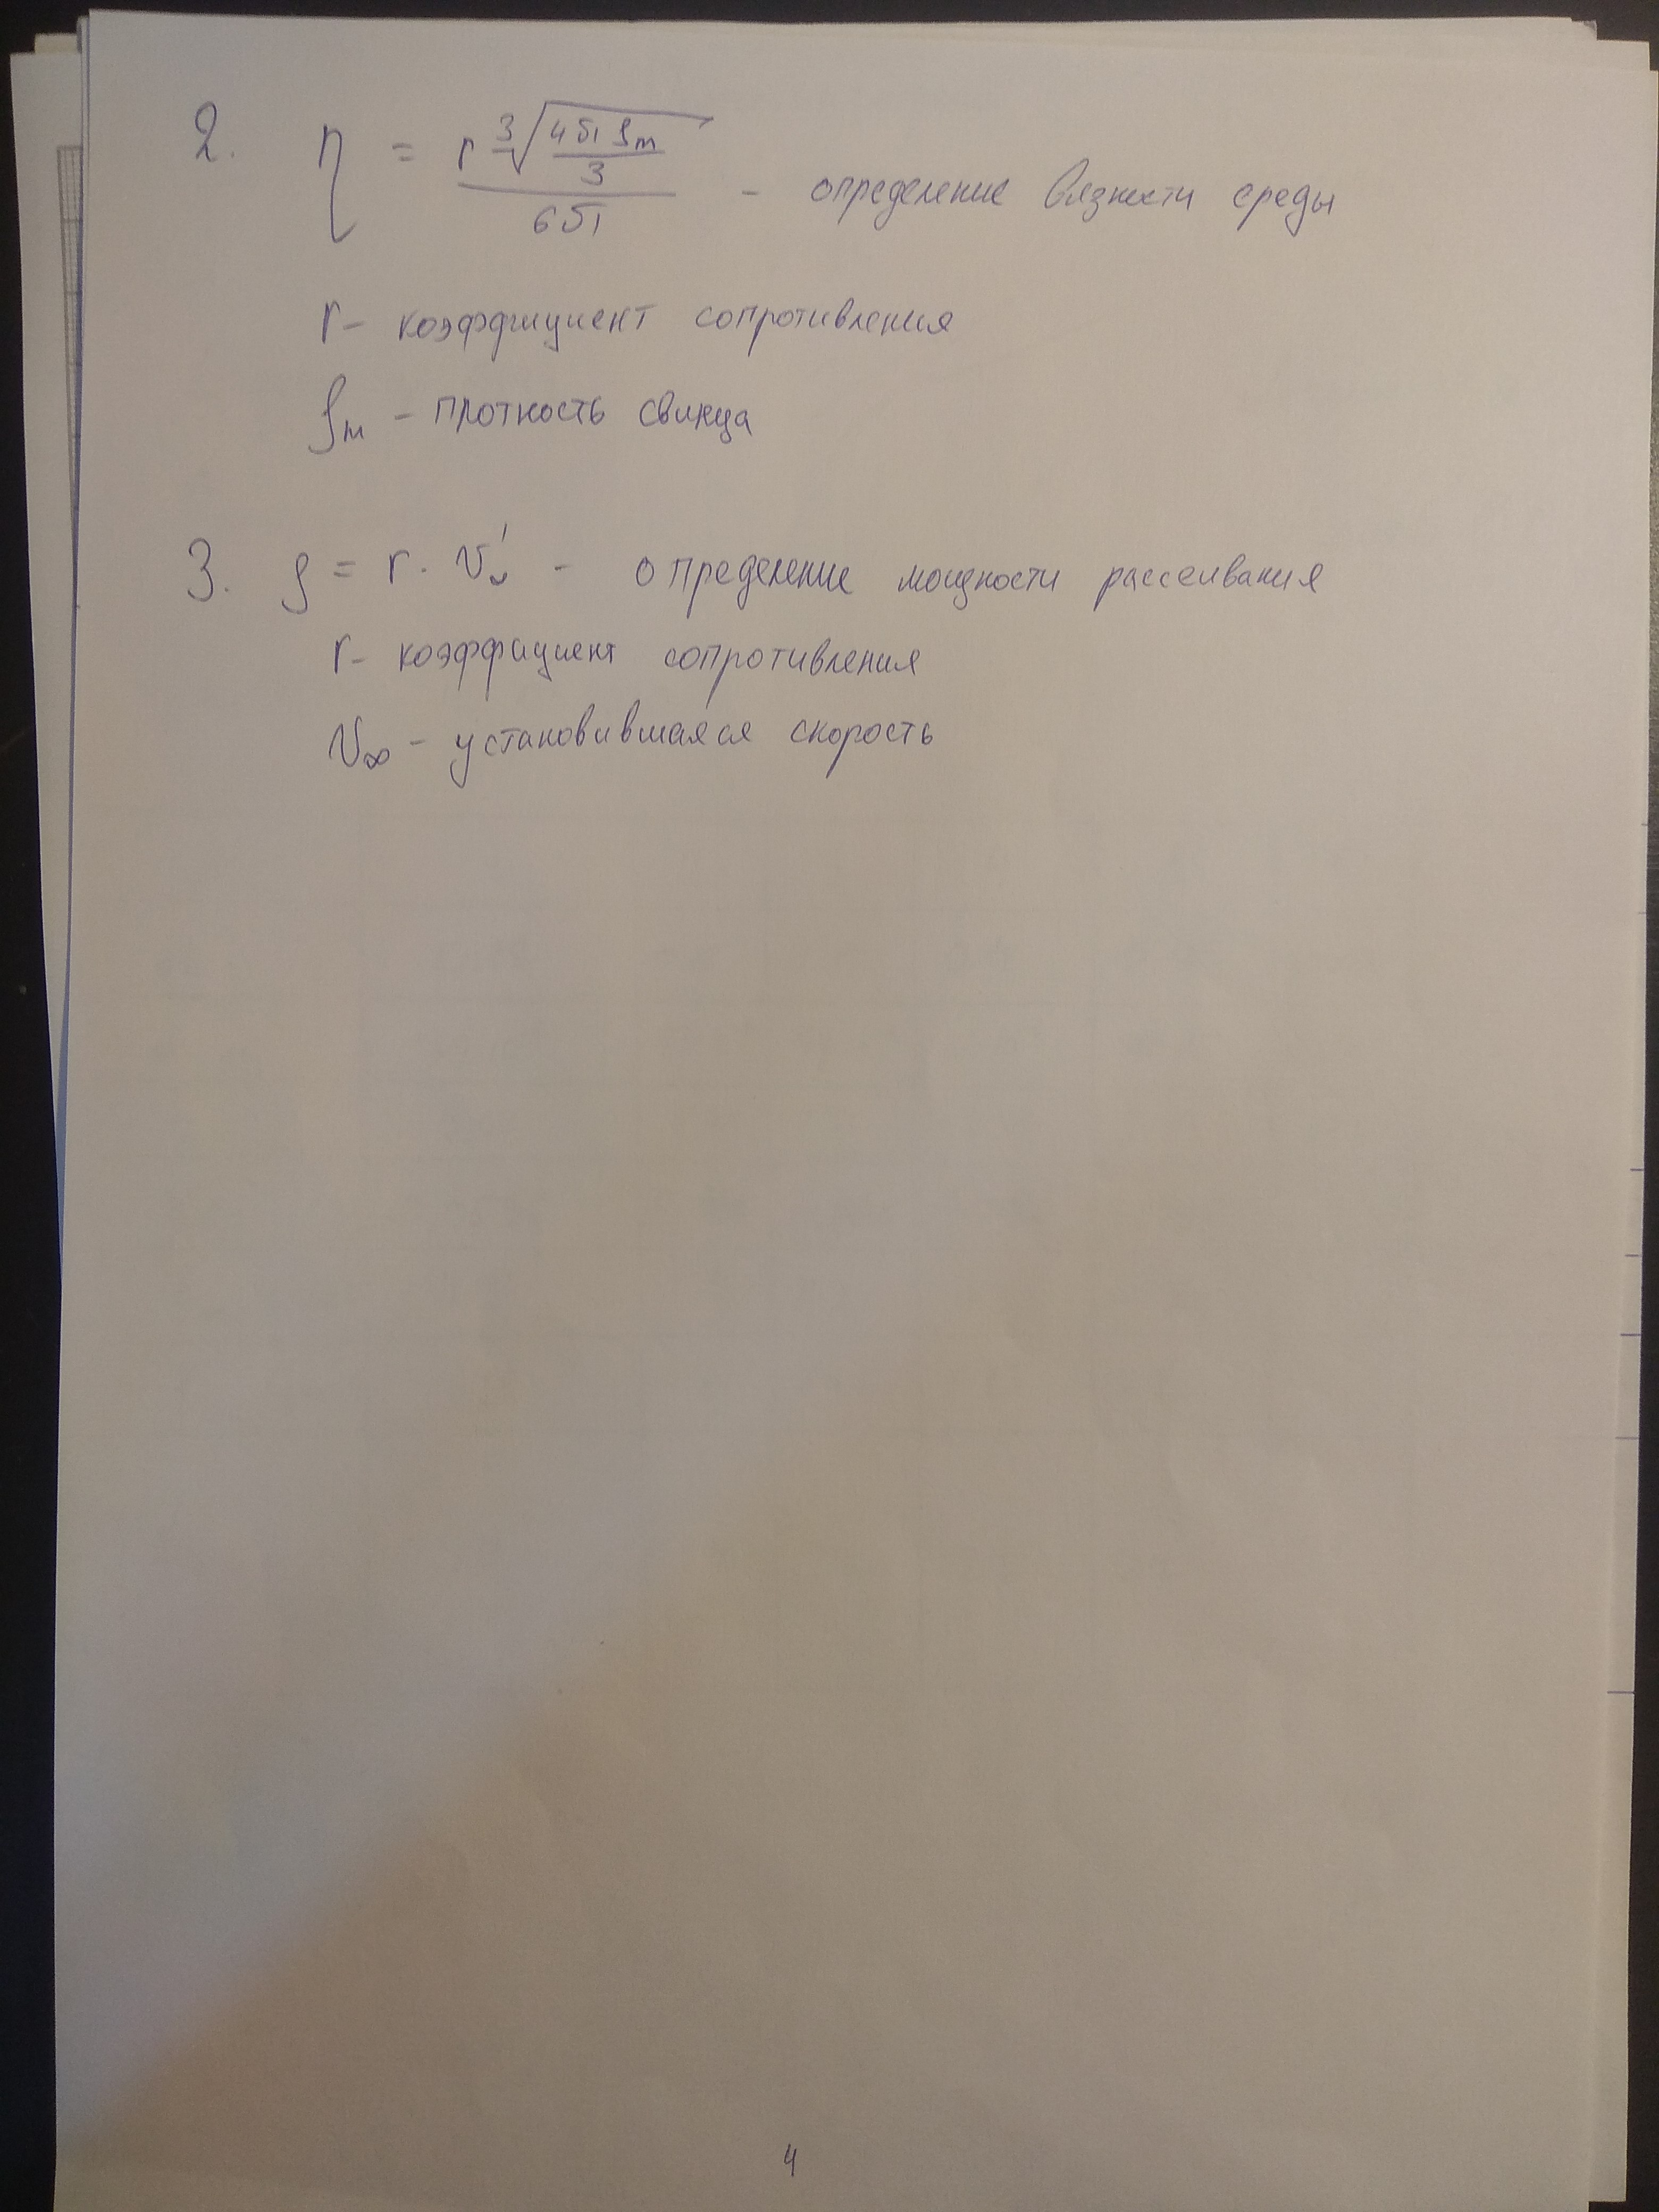 2. η = r ∛(4π ρm / 3) / 6π - определение вязкости среды
r - коэффициент сопротивления
ρm - протность свинца
3. ρ = r · v - определение мощности рассеивания
r - коэффициент сопротивления
v∞ - установившаяся скорость
4